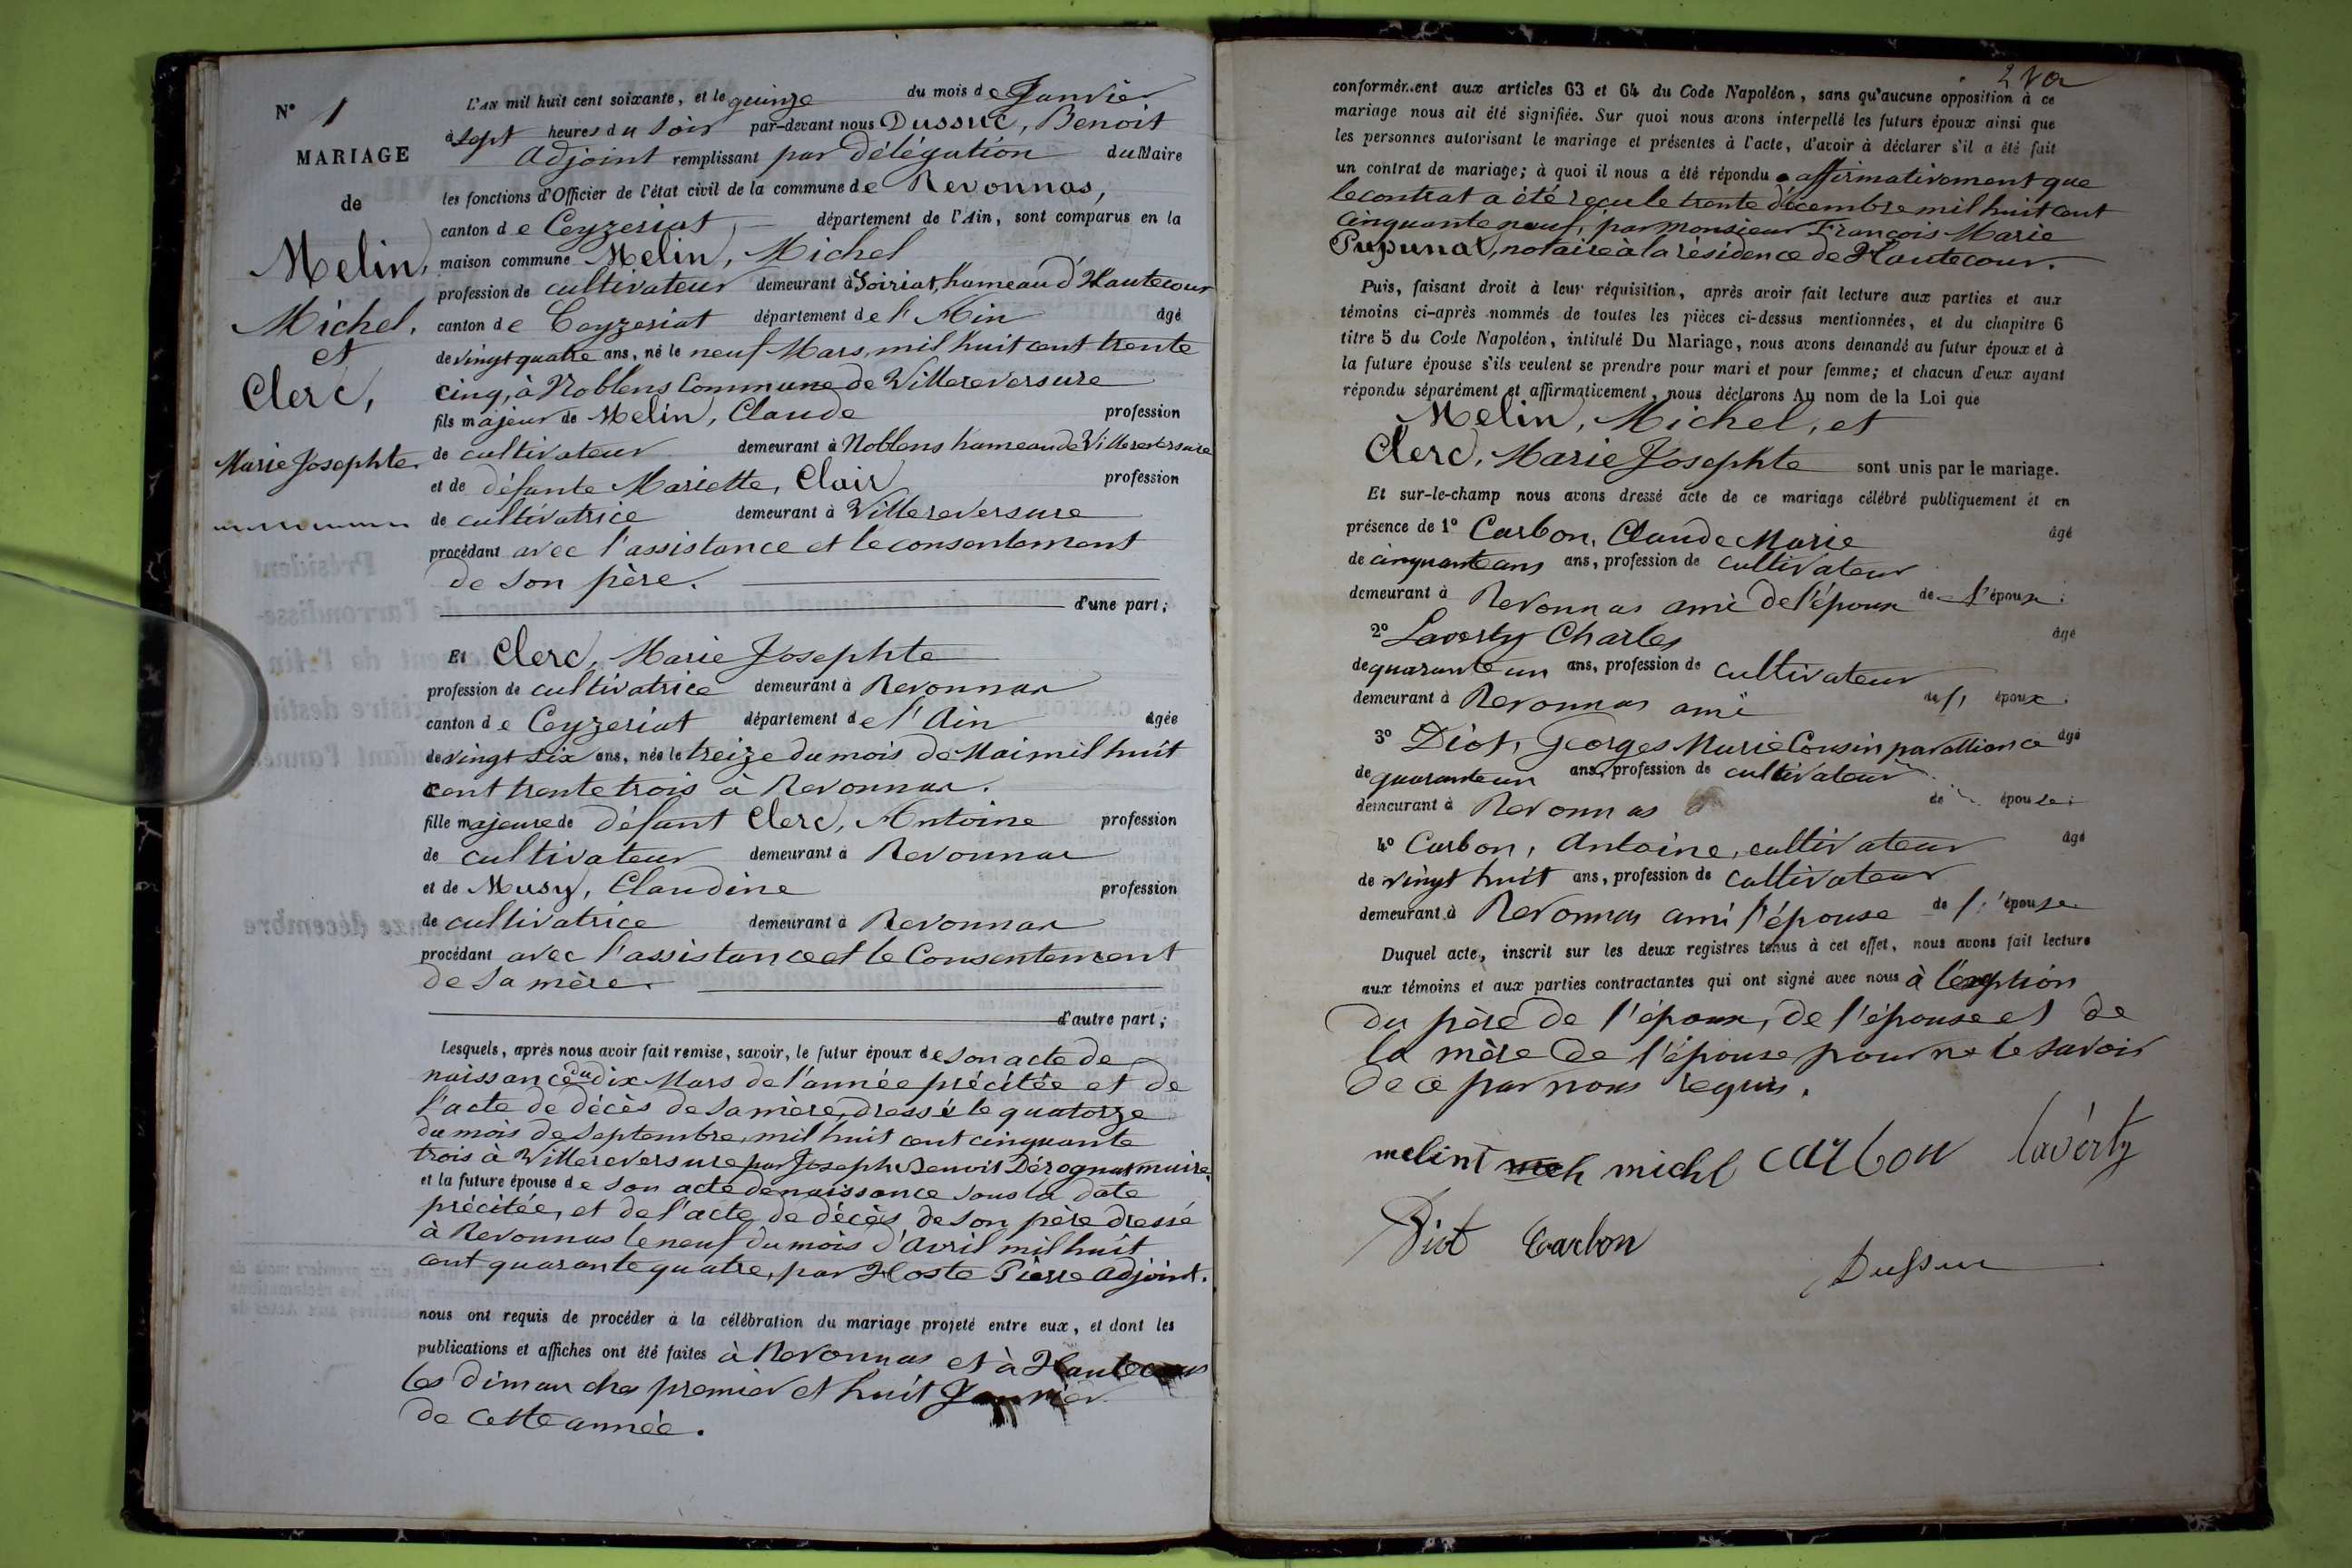 N° 1
MARIAGE
de
Melin,
Michel,
et
Clerc,
Marie Josephte
L'AN mil huit cent soixante, et le quinze du mois de Janvier
à sept heures du soir par-devant nous Dussuc, Benoit
Adjoint remplissant par délégation du Maire
les fonctions d'Officier de l'état civil de la commune de Revonnas,
canton de Ceyzeriat, département de l'Ain, sont comparus en la
maison commune Melin, Michel
profession de cultivateur demeurant à Soiriat, hameau d'Hautecour
canton de Ceyzeriat département de l'Ain âgé
de vingt quatre ans, né le neuf Mars, mil huit cent trente
cinq, à Noblens Commune de Villereversure
fils majeur de Melin, Claude profession
de cultivateur demeurant à Noblens hameau de Villereversure
et de défunte Mariette, Clair profession
de cultivatrice demeurant à Villereversure
procédant avec l'assistance et le consentement
de son père.
d'une part;
Et Clerc, Marie Josephte
profession de cultivatrice demeurant à Revonnas
canton de Ceyzeriat département de l'Ain âgée
de vingt six ans, née le treize du mois de Mai mil huit
cent trente trois à Revonnas.
fille majeure de défunt Clerc, Antoine profession
de cultivateur demeurant à Revonnas
et de Musy, Claudine profession
de cultivatrice demeurant à Revonnas
procédant avec l'assistance et le Consentement
de sa mère.
d'autre part;
Lesquels, après nous avoir fait remise, savoir, le futur époux de son acte de
naissance du dix Mars de l'année précitée et de
l'acte de décès de sa mère, dressé le quatorze
du mois de Septembre, mil huit cent cinquante
trois à Villereversure par Joseph Benoit Dérognat maire,
et la future épouse de son acte de naissance sous la date
précitée, et de l'acte de décès de son père dressé
à Revonnas le neuf du mois d'Avril mil huit
cent quarante quatre, par Hoste Pierre adjoint.
nous ont requis de procéder à la célébration du mariage projeté entre eux, et dont les
publications et affiches ont été faites à Revonnas et à Hautecour
les dimanches premier et huit Janvier
de cette année.
conformément aux articles 63 et 64 du Code Napoléon, sans qu'aucune opposition à ce
mariage nous ait été signifiée. Sur quoi nous avons interpellé les futurs époux ainsi que
les personnes autorisant le mariage et présentes à l'acte, d'avoir à déclarer s'il a été fait
un contrat de mariage; à quoi il nous a été répondu affirmativement que
le contrat a été reçu le trente décembre mil huit cent
cinquante neuf, par monsieur François Marie
Pupunat, notaire à la résidence de Hautecour.
Puis, faisant droit à leur réquisition, après avoir fait lecture aux parties et aux
témoins ci-après nommés de toutes les pièces ci-dessus mentionnées, et du chapitre 6
titre 5 du Code Napoléon, intitulé Du Mariage, nous avons demandé au futur époux et à
la future épouse s'ils veulent se prendre pour mari et pour femme; et chacun d'eux ayant
répondu séparément et affirmativement, nous déclarons Au nom de la Loi que
Melin, Michel, et
Clerc, Marie Josephte sont unis par le mariage.
Et sur-le-champ nous avons dressé acte de ce mariage célébré publiquement et en
présence de 1° Carbon, Claude Marie âgé
de cinquante ans ans, profession de cultivateur
demeurant à Revonnas ami de l'époux de l'époux;
2° Laverty Charles âgé
de quarante un ans, profession de cultivateur
demeurant à Revonnas ami époux;
3° Diot, Georges Marie Cousin par alliance âgé
de quarante un ans, profession de cultivateur
demeurant à Revonnas de épouse;
4° Carbon, Antoine, cultivateur âgé
de vingt huit ans, profession de cultivateur
demeurant à Revonnas ami l'épouse de l'épouse.
Duquel acte, inscrit sur les deux registres tenus à cet effet, nous avons fait lecture
aux témoins et aux parties contractantes qui ont signé avec nous à l'exeption
du père de l'époux, de l'épouse et de
la mère de l'épouse pour ne le savoir
de ce par nous requis.
melint michl carbon laverty
Diot Carbon
Dussuc